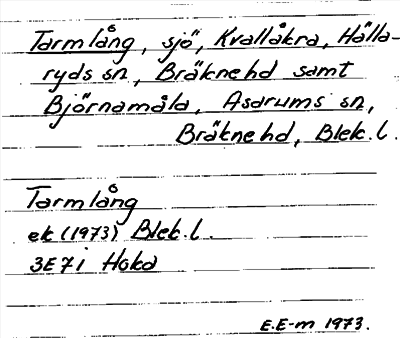 Tarmlång, sjö, Kvallåkra, Hälla-
ryds sn, Bräknehd samt
Björnamåla, Asarums sn,
Bräknehd, Blek.l.
Tarmlång
ek (1973) Blek.l.
3E7i Hoka
E.E-m 1973.